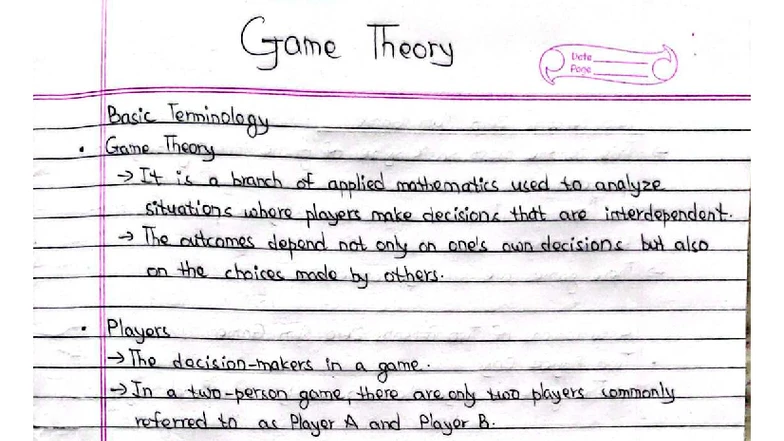 Game Theory
Date
Page
Basic Terminology
• Game Theory
→ It is a branch of applied mathematics used to analyze
situations where players make decisions that are interdependent.
→ The outcomes depend not only on one's own decisions but also
on the choices made by others.
• Players
→ The decision-makers in a game.
→ In a two-person game, there are only two players commonly
referred to as Player A and Player B.